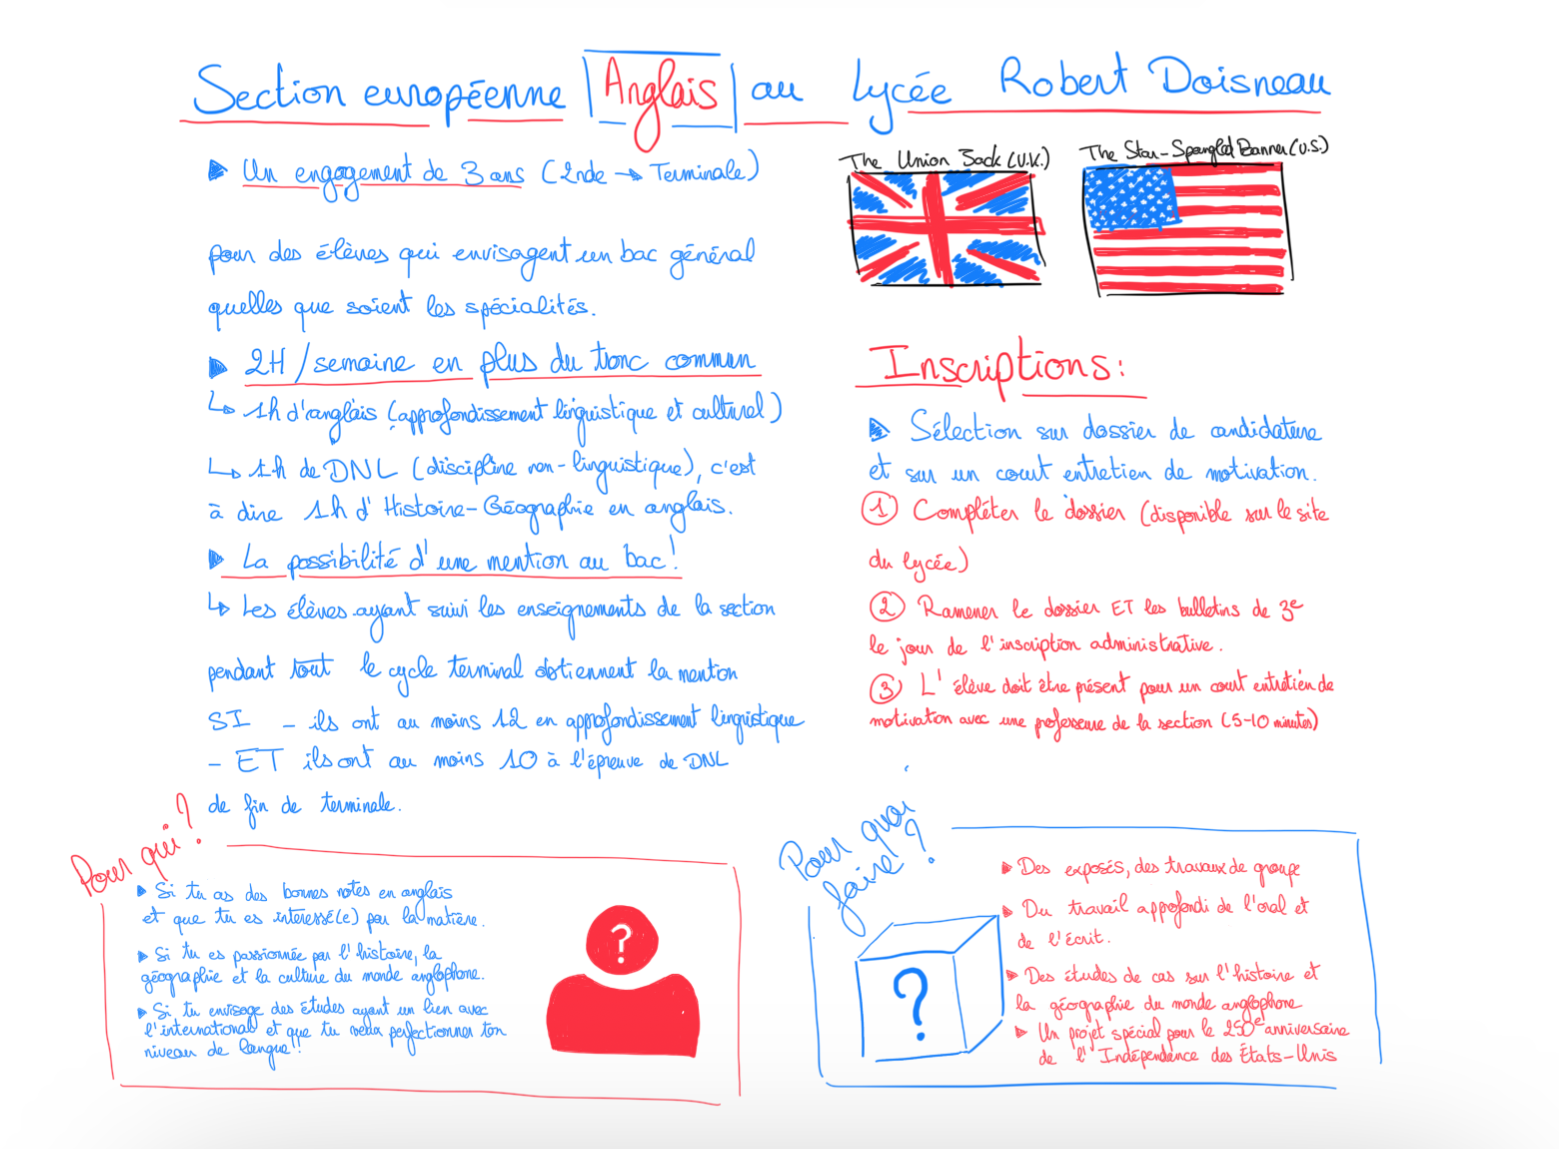 Section européenne Anglais au Lycée Robert Doisneau
▶ Un engagement de 3 ans (2nde → Terminale)
pour des élèves qui envisagent un bac général
quelles que soient les spécialités.
▶ 2H/semaine en plus du tronc commun
↳ 1h d'anglais (approfondissement linguistique et culturel)
↳ 1h de DNL (discipline non-linguistique), c'est
à dire 1h d'Histoire-Géographie en anglais.
▶ La possibilité d'une mention au bac!
↳ Les élèves ayant suivi les enseignements de la section
pendant tout le cycle terminal obtiennent la mention
SI - ils ont au moins 12 en approfondissement linguistique
- ET ils ont au moins 10 à l'épreuve de DNL
de fin de terminale.
The Union Jack (U.K.)
The Star-Spangled Banner (U.S.)
Inscriptions:
▶ Sélection sur dossier de candidature
et sur un court entretien de motivation.
① Compléter le dossier (disponible sur le site
du lycée)
② Ramener le dossier ET les bulletins de 3e
le jour de l'inscription administrative.
③ L'élève doit être présent pour un court entretien de
motivation avec une professeure de la section (5-10 minutes)
Pour qui?
▶ Si tu as des bonnes notes en anglais
et que tu es intéressé(e) par la matière.
▶ Si tu es passionnée par l'histoire, la
géographie et la culture du monde anglophone.
▶ Si tu envisage des études ayant un lien avec
l'international et que tu veux perfectionner ton
niveau de langue!!
?
Pour quoi
faire?
▶ Des exposés, des travaux de groupe
▶ Du travail approfondi de l'oral et
de l'écrit.
▶ Des études de cas sur l'histoire et
la géographie du monde anglophone
▶ Un projet spécial pour le 250e anniversaire
de l'Indépendance des États-Unis
?